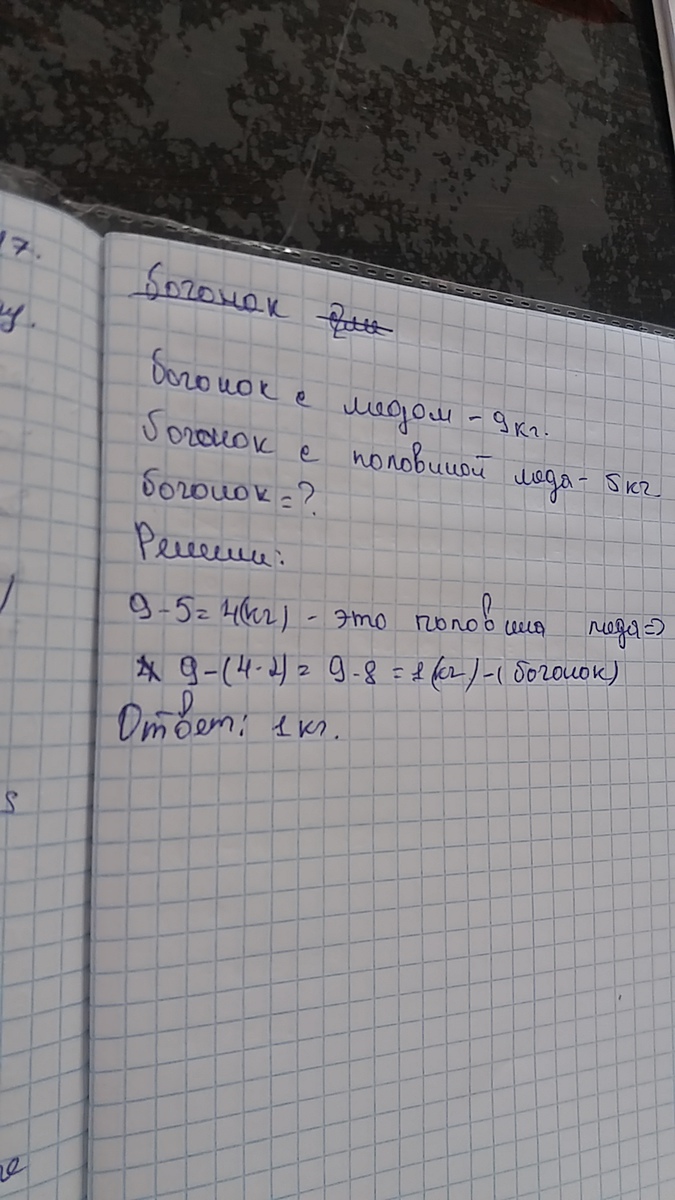 17.
у.
Богонак
богонок с медом - 9кг.
богонок с половиной меда - 5кг
богонок = ?
Решении:
9 - 5 = 4(кг) - это половина меда =>
9 - (4 · 2) = 9 - 8 = 1(кг) - (богонок)
Ответ: 1 кг.
s